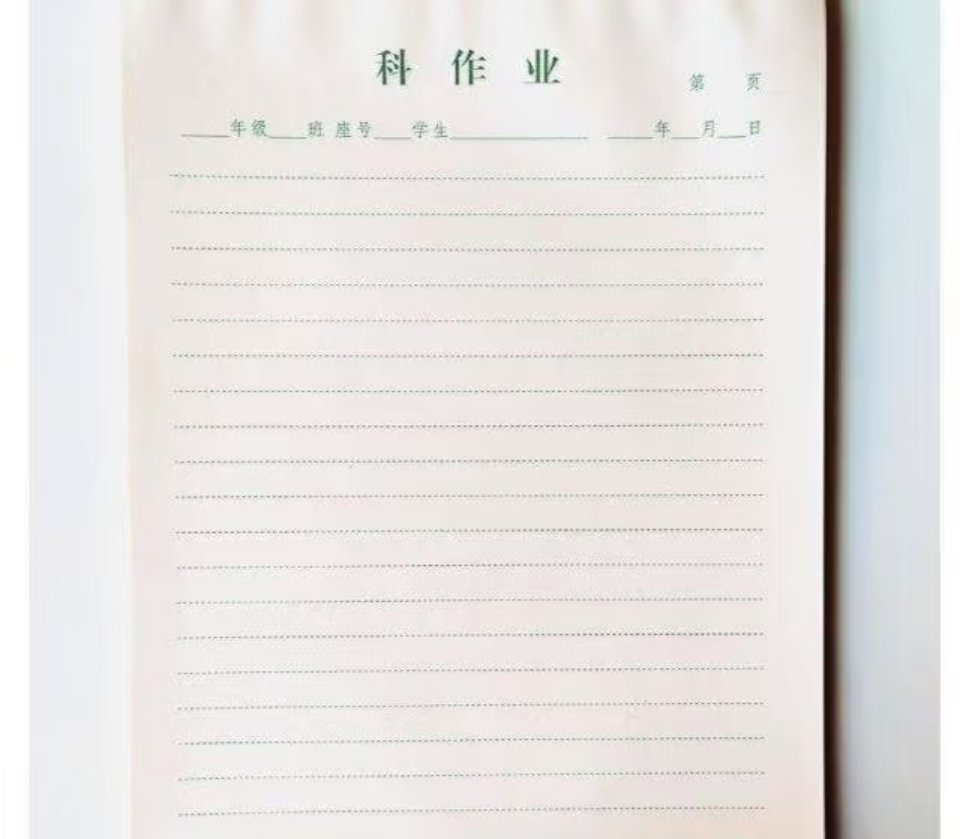 科作业
第 页
____年级____班 座号____学生______________ ____年___月___日